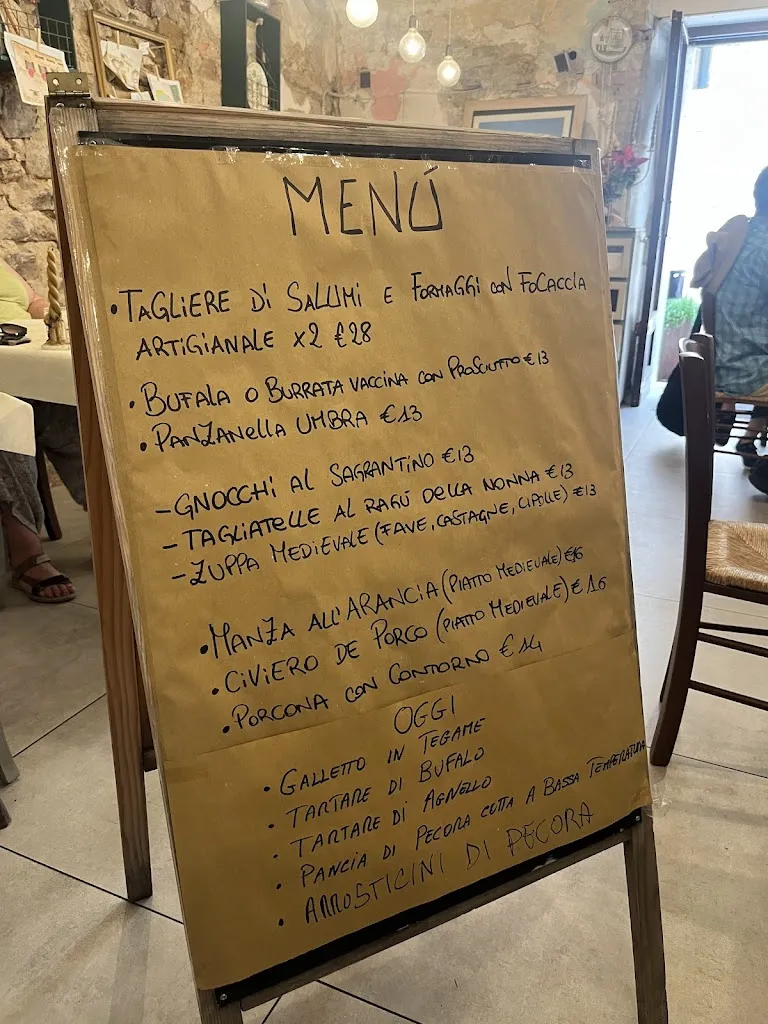 MENÚ
•TAGLIERE Di SALUMI E FORMAGGI CON FOCACCIA
ARTIGIANALE X2 €28
•BUFALA O BURRATA VACCINA CON PROSCIUTTO €13
•PANZANELLA UMBRA €13
-GNOCCHI AL SAGRANTINO €13
-TAGLIATELLE AL RAGÚ DELLA NONNA €13
-ZUPPA MEDIEVALE (FAVE, CASTAGNE, CIPOLLE) €13
•MANZA ALL'ARANCIA (PIATTO MEDIEVALE) €16
•CIVIERO DE PORCO (PIATTO MEDIEVALE) € 16
•PORCONA CON CONTORNO € 14
OGGI
• GALLETTO IN TEGAME
• TARTARE DI BUFALO
• TARTARE Di AGNELLO
• PANCIA DI PECORA COTTA A BASSA TEMPERATURA
• ARROSTICINI DI PECORA